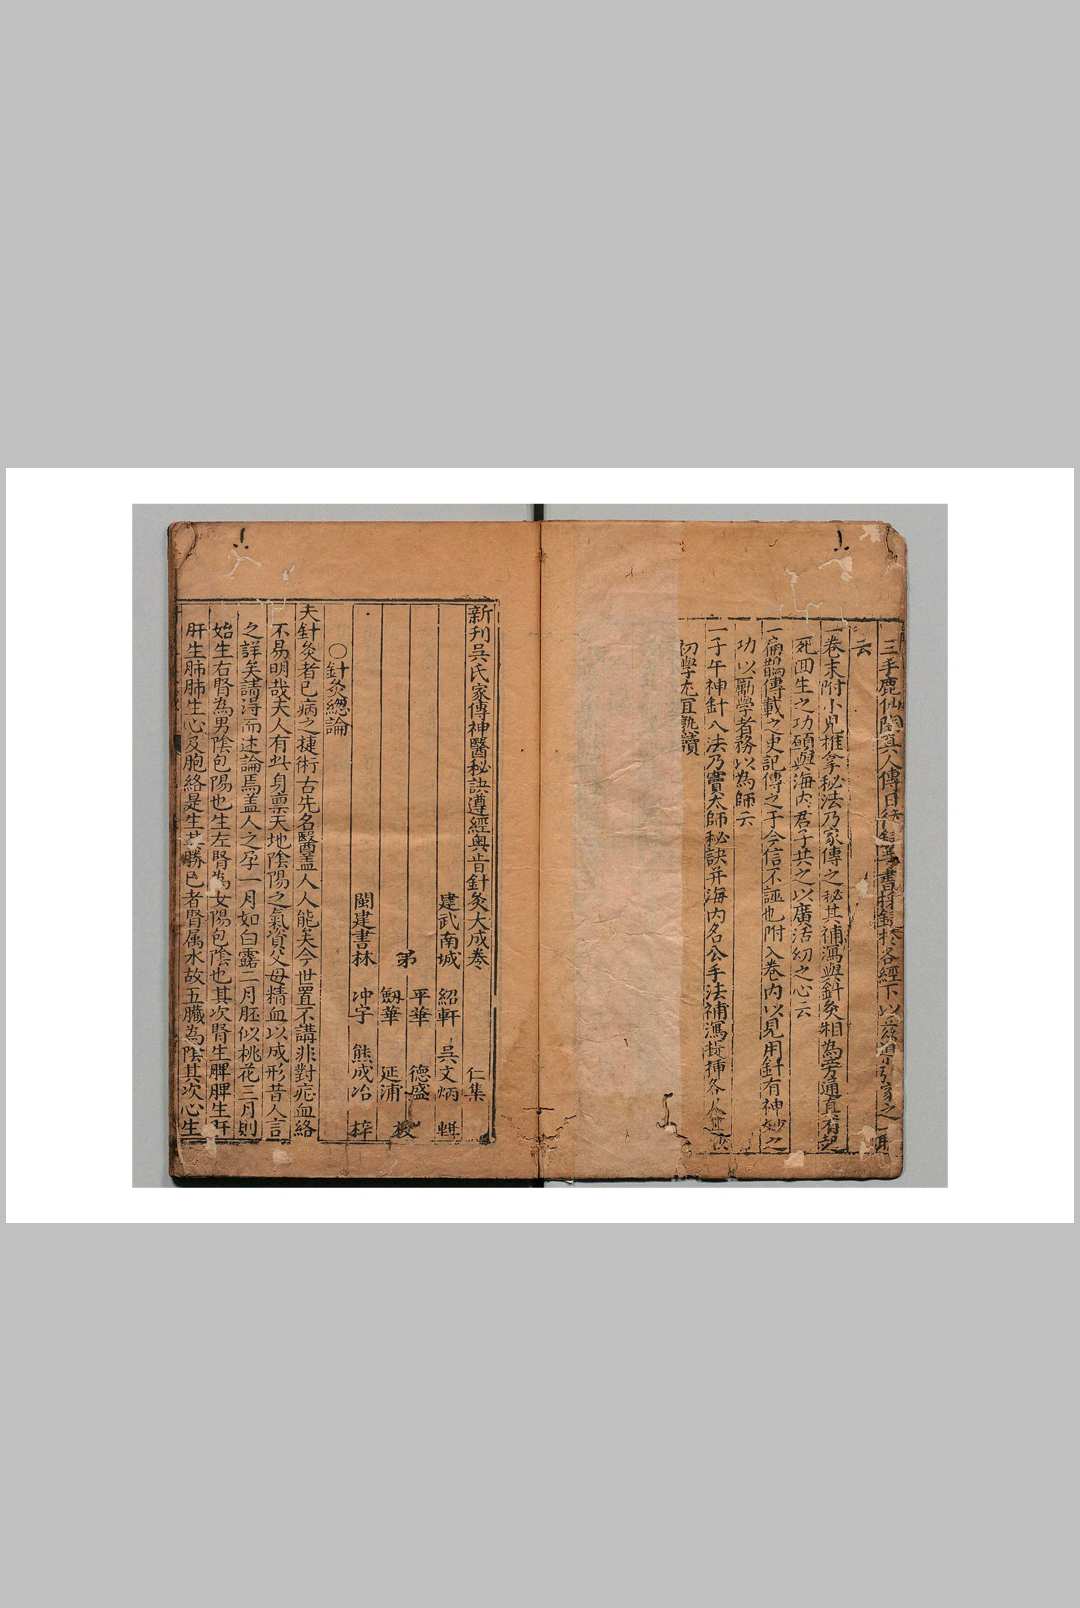 三手鹿仙陶真人傳日後
云
一卷末附小兒推拿秘法乃家傳之秘其補瀉與針灸相為旁通真有起
死回生之功願與海內君子共之以廣活幼之心云
一扁鵲傳載之史記傳之于今信不誣也附入卷內以見用針有神妙之
功以勵學者務以為師云
一子午神針八法乃竇太師秘訣并海內名公手法補瀉
初學尤宜熟讀
新刊吳氏家傳神醫秘訣遵經奧旨針灸大成卷 仁集
建武南城 紹軒 吳文炳 輯
弟 平華 德盛 校
劔華 延浦
閩建書林 冲宇 熊成冶 梓
○針灸總論
夫針灸者已病之捷術古先名醫盖人人能矣今世置不講非對症血絡
不易明哉夫人有此身禀天地陰陽之氣資父母精血以成形昔人言
之詳矣請得而述論焉盖人之孕一月如白露二月胚似桃花三月則
始生右腎為男陰包陽也生左腎為女陽包陰也其次腎生脾脾生肝
肝生肺肺生心及胞絡是生其勝己者腎属水故五臟為陰其次心生